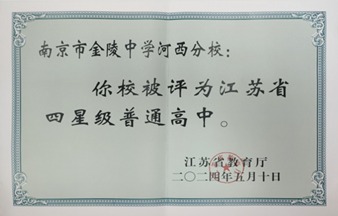 南京市金陵中学河西分校：
你校被评为江苏省
四星级普通高中。
江苏省教育厅
二〇二四年五月十日